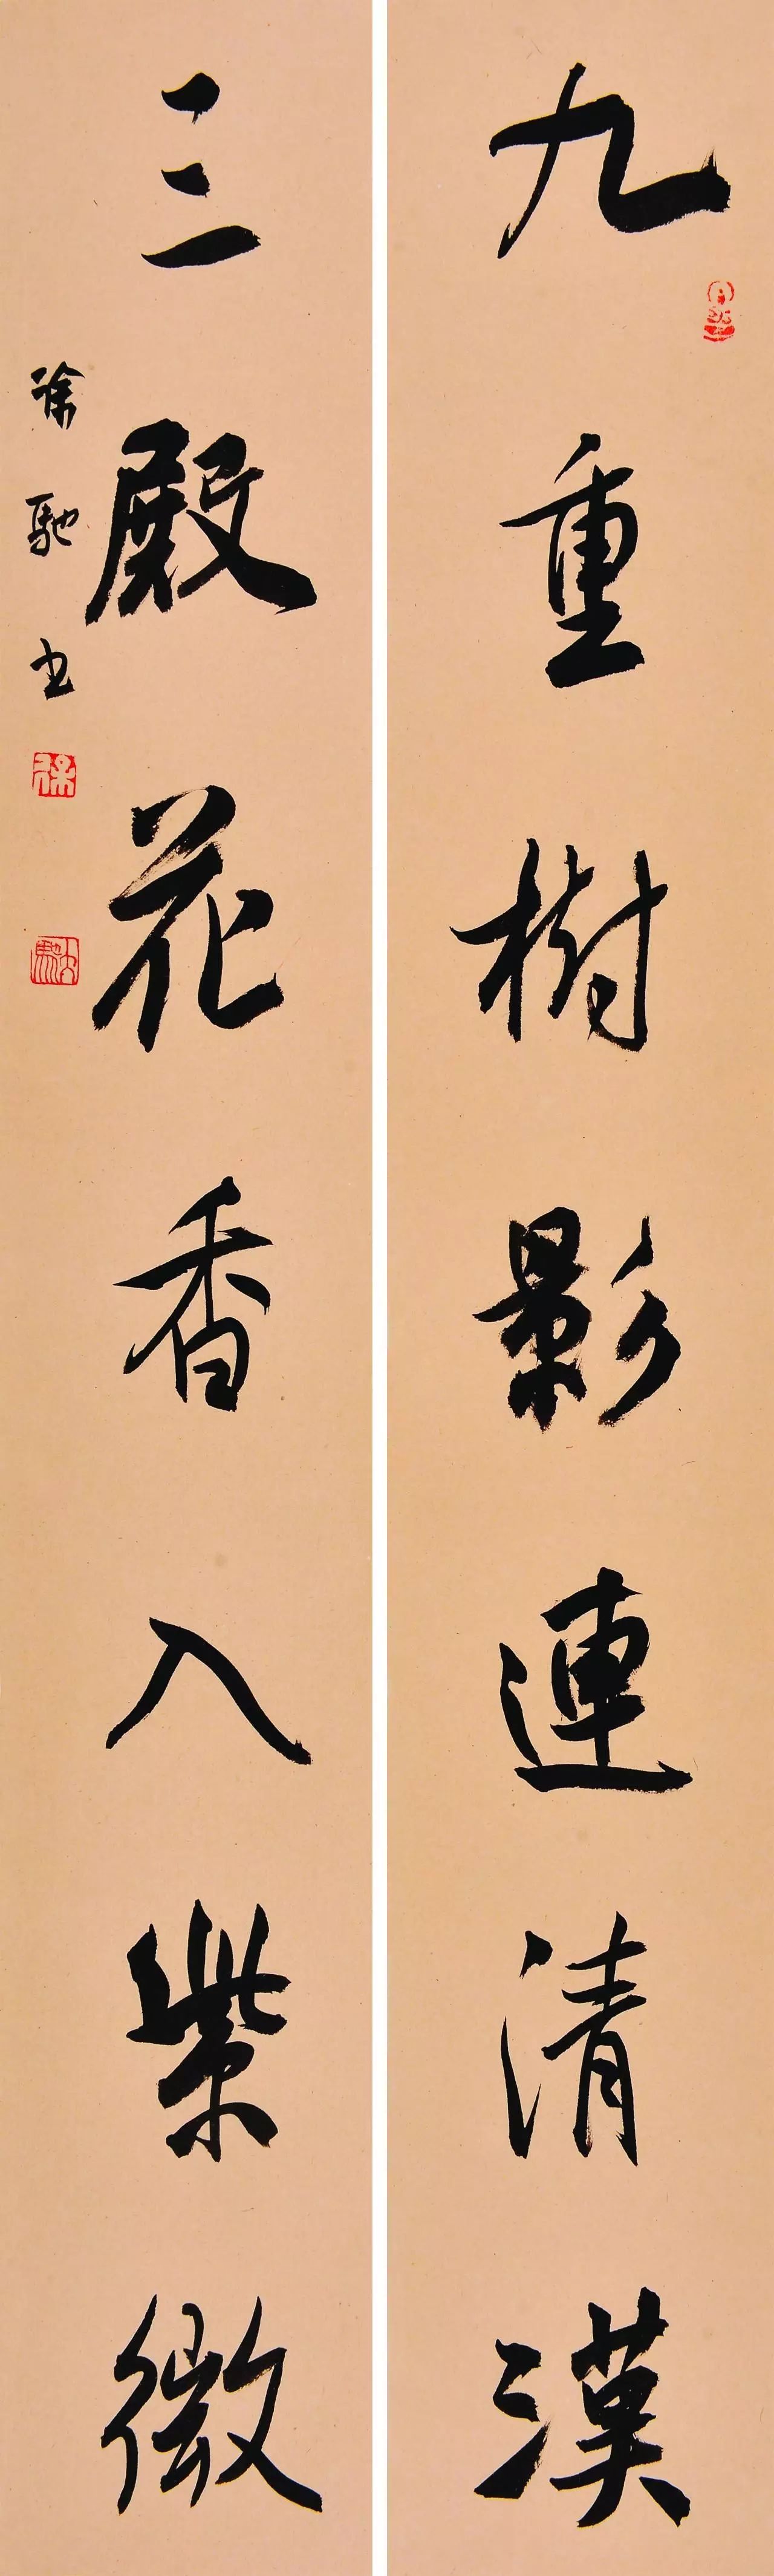 九重樹影連清漢
三殿花香入紫微
徐馳书